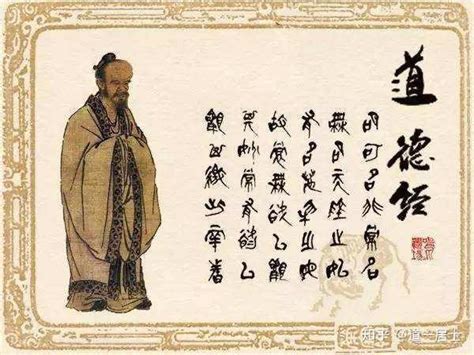 道德经
名可名非常名
無名天地之始
有名萬物之母
故常無欲以觀
其妙常有欲以
觀其徼此兩者
知乎 @道一居士